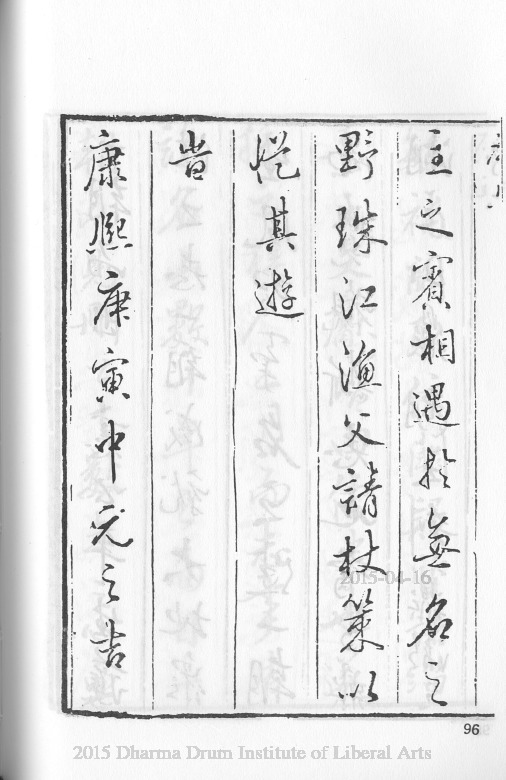 主之賓相遇於無名之
野珠江漁父請杖策以
從其遊
旹
康熙庚寅中元之吉
2015-04-16
96
2015 Dharma Drum Institute of Liberal Arts